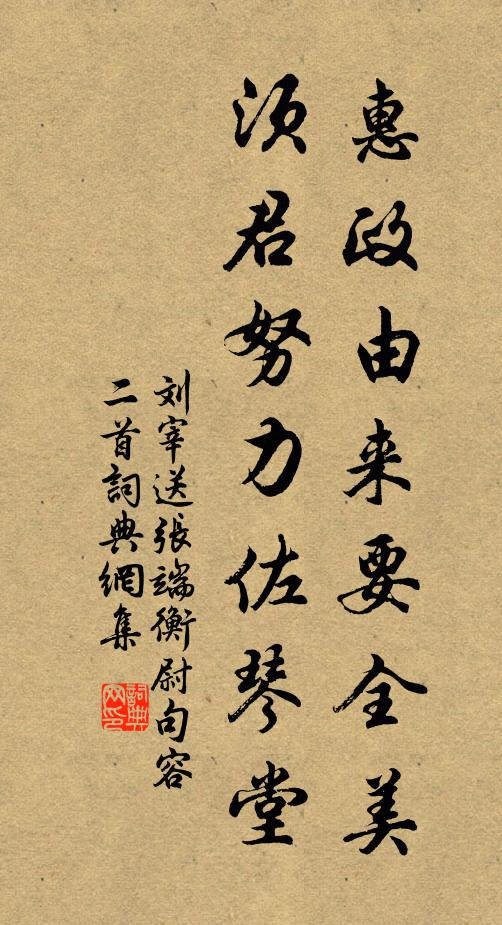 惠政由来要全美
须君努力佐琴堂
刘宰送張端衡尉句容
二首詞典網集
詞典网印